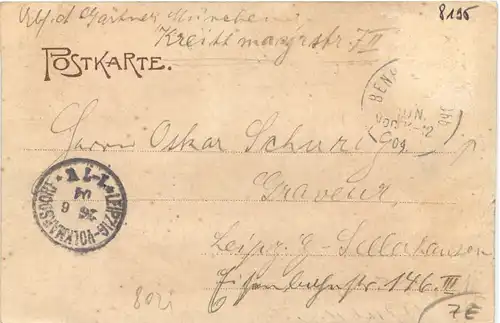 Abs. Gärtner München
Kreittmayrstr. 7 II
8196
POSTKARTE.
Herrn Oskar Schurig
Graveur,
Leipzig-Sellerhausen
Eisenbahnstr 146. III
LEIPZIG-VOLKMARSDORF
7E